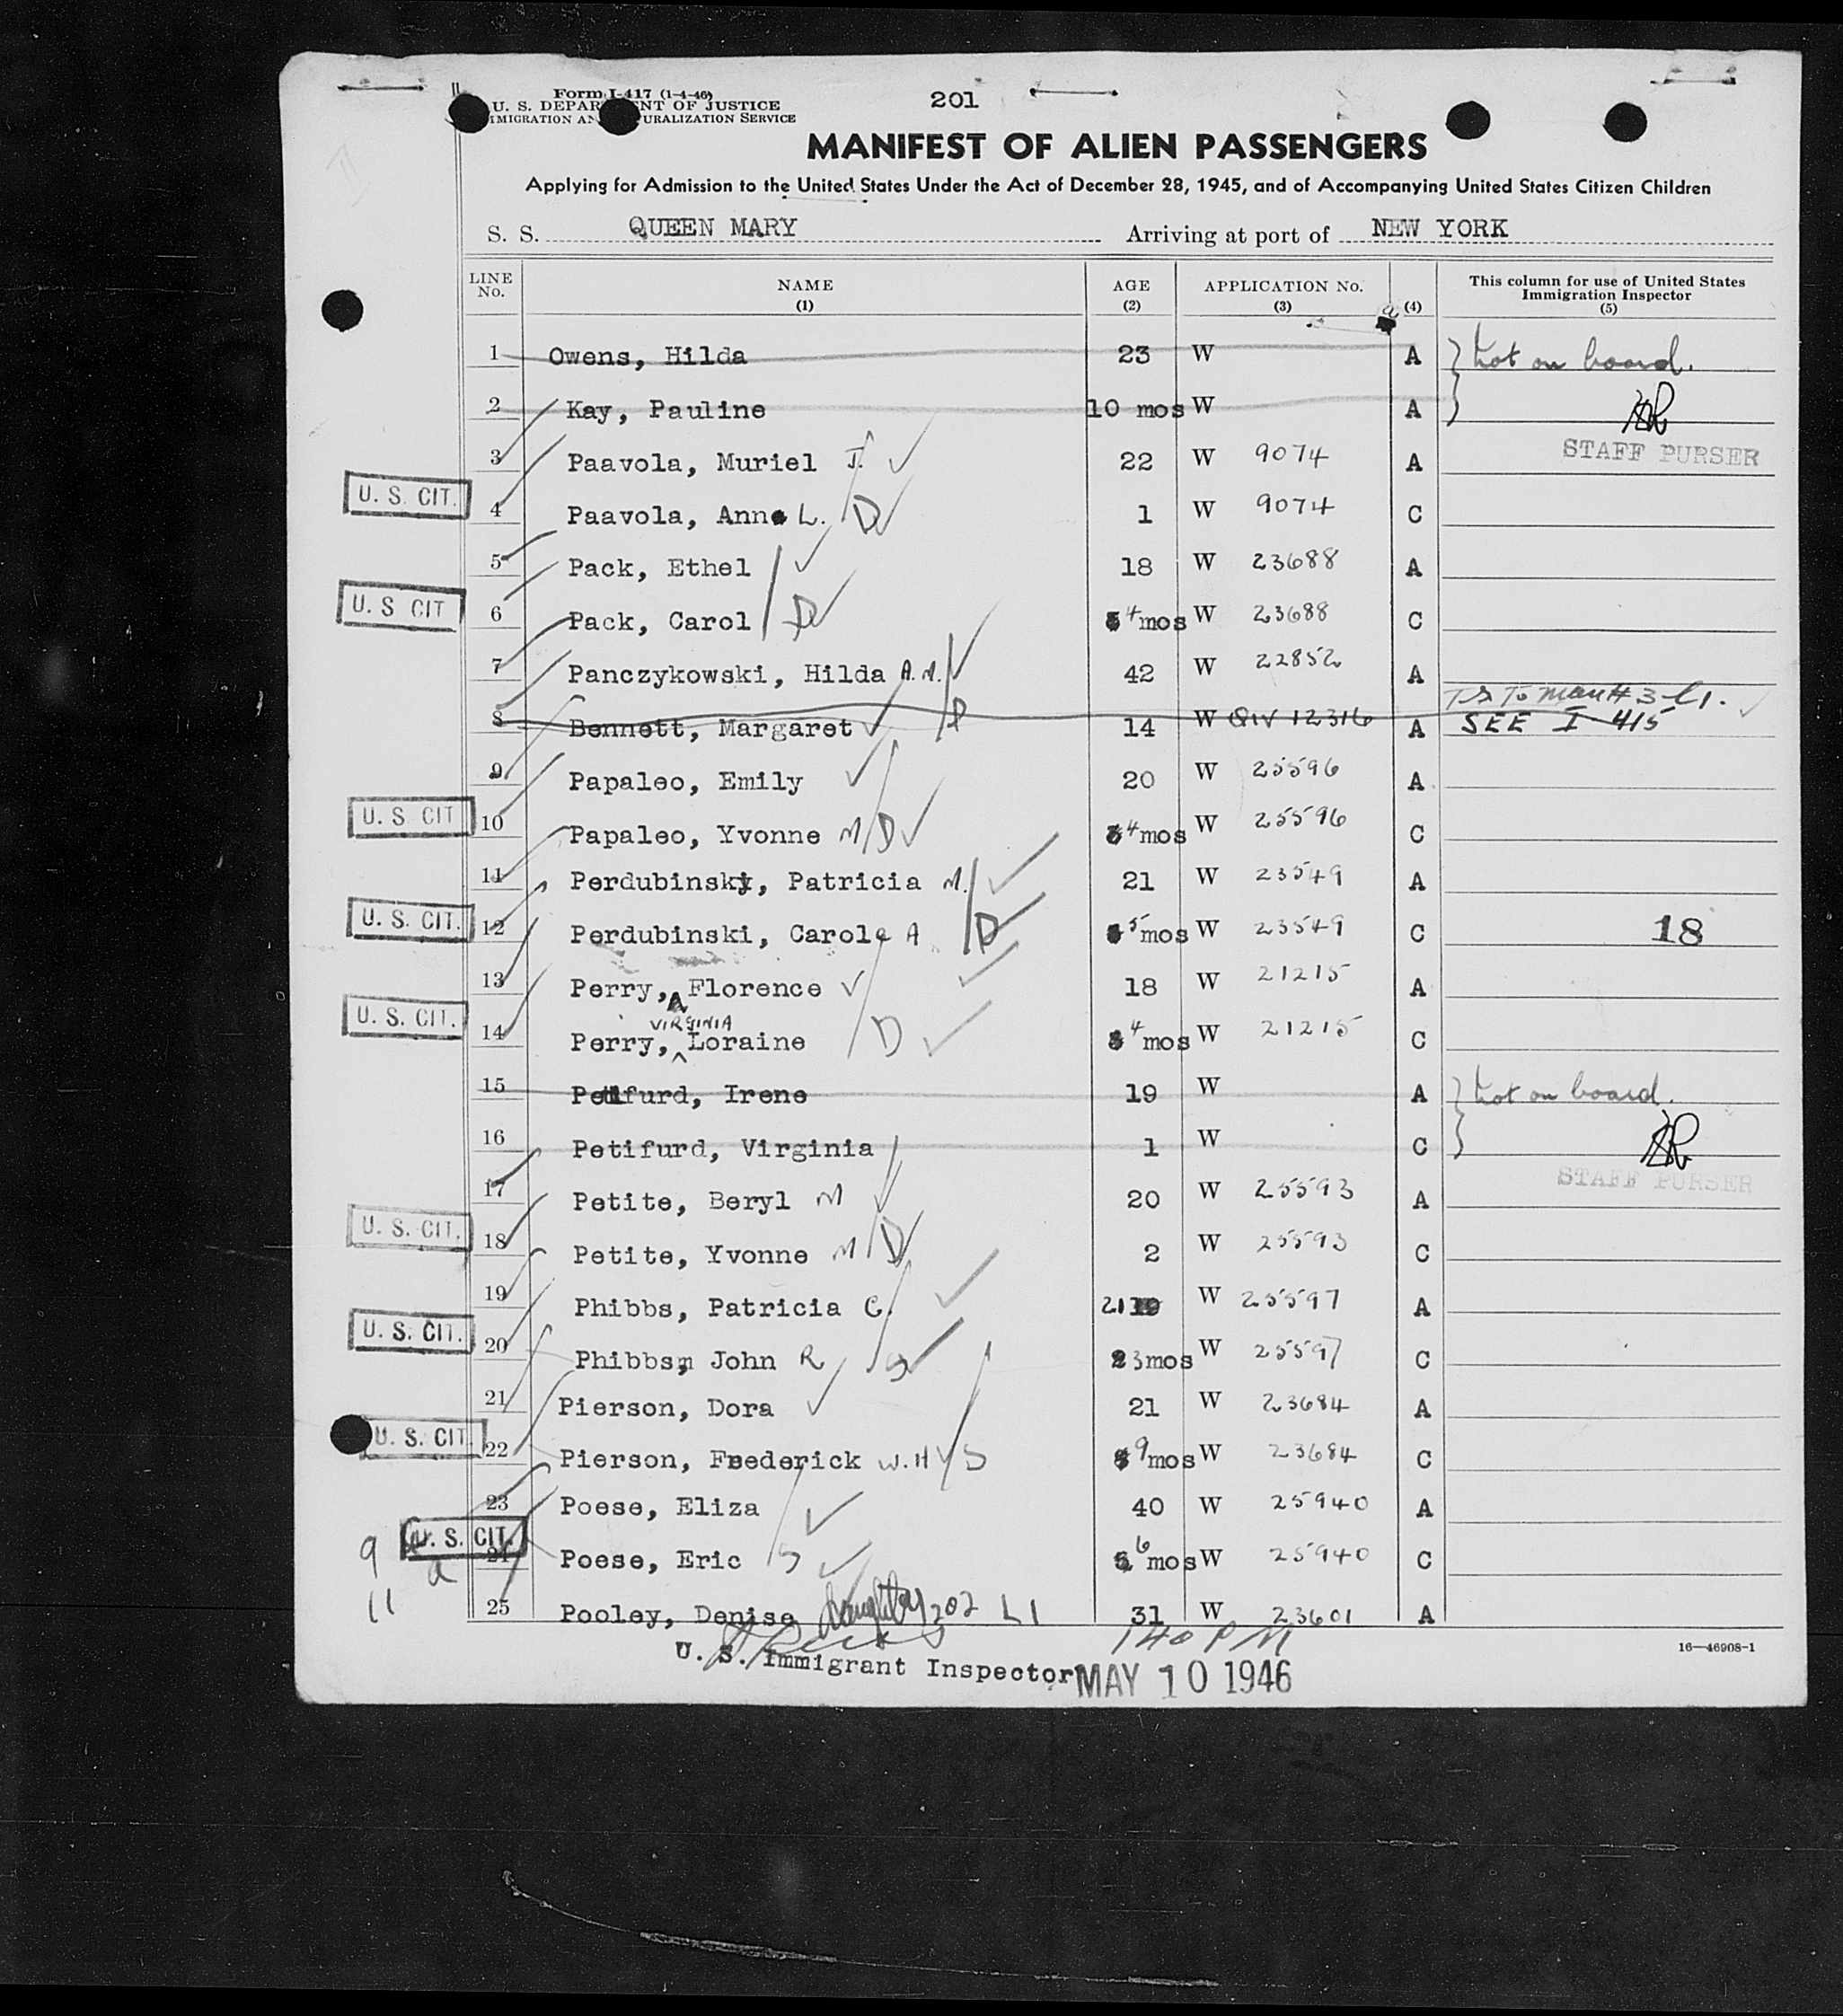 Form I-417 (1-4-46)
U. S. DEPARTMENT OF JUSTICE
IMMIGRATION AND NATURALIZATION SERVICE
201
MANIFEST OF ALIEN PASSENGERS
Applying for Admission to the United States Under the Act of December 28, 1945, and of Accompanying United States Citizen Children
S. S. QUEEN MARY Arriving at port of NEW YORK
LINE No. NAME (1) AGE (2) APPLICATION No. (3) (4) This column for use of United States Immigration Inspector (5)
1 Owens, Hilda 23 W A Not on board.
2 Kay, Pauline 10 mos W A
STAFF PURSER
3 Paavola, Muriel J. 22 W 9074 A
U. S. CIT. 4 Paavola, Anne L. D 1 W 9074 C
5 Pack, Ethel 18 W 23688 A
U. S. CIT 6 Pack, Carol D 4 mos W 23688 C
7 Panczykowski, Hilda A. M. 42 W 22852 A
8 Bennett, Margaret D 14 W 12316 A Ts To Man# 3 l1. SEE I 415
9 Papaleo, Emily 20 W 25596 A
U. S. CIT 10 Papaleo, Yvonne M D 4 mos W 25596 C
11 Perdubinski, Patricia M. 21 W 23549 A
U. S. CIT. 12 Perdubinski, Carole A D 5 mos W 23549 C 18
13 Perry, A Florence 18 W 21215 A
U. S. CIT. 14 Perry, VIRGINIA Loraine D 4 mos W 21215 C
15 Petifurd, Irene 19 W A Not on board.
16 Petifurd, Virginia 1 W C
STAFF PURSER
17 Petite, Beryl M 20 W 25593 A
U. S. CIT. 18 Petite, Yvonne M D 2 W 25593 C
19 Phibbs, Patricia C. 21 19 W 25597 A
U. S. CIT. 20 Phibbs, John R S 3 mos W 25597 C
21 Pierson, Dora 21 W 23684 A
U. S. CIT. 22 Pierson, Frederick W. H S 9 mos W 23684 C
23 Poese, Eliza 40 W 25940 A
U. S. CIT. 24 Poese, Eric S 6 mos W 25940 C
9 a
11
25 Pooley, Denise daughter 202 L1 31 W 23601 A
U. S. Immigrant Inspector
140 PM
MAY 10 1946
16—46908-1